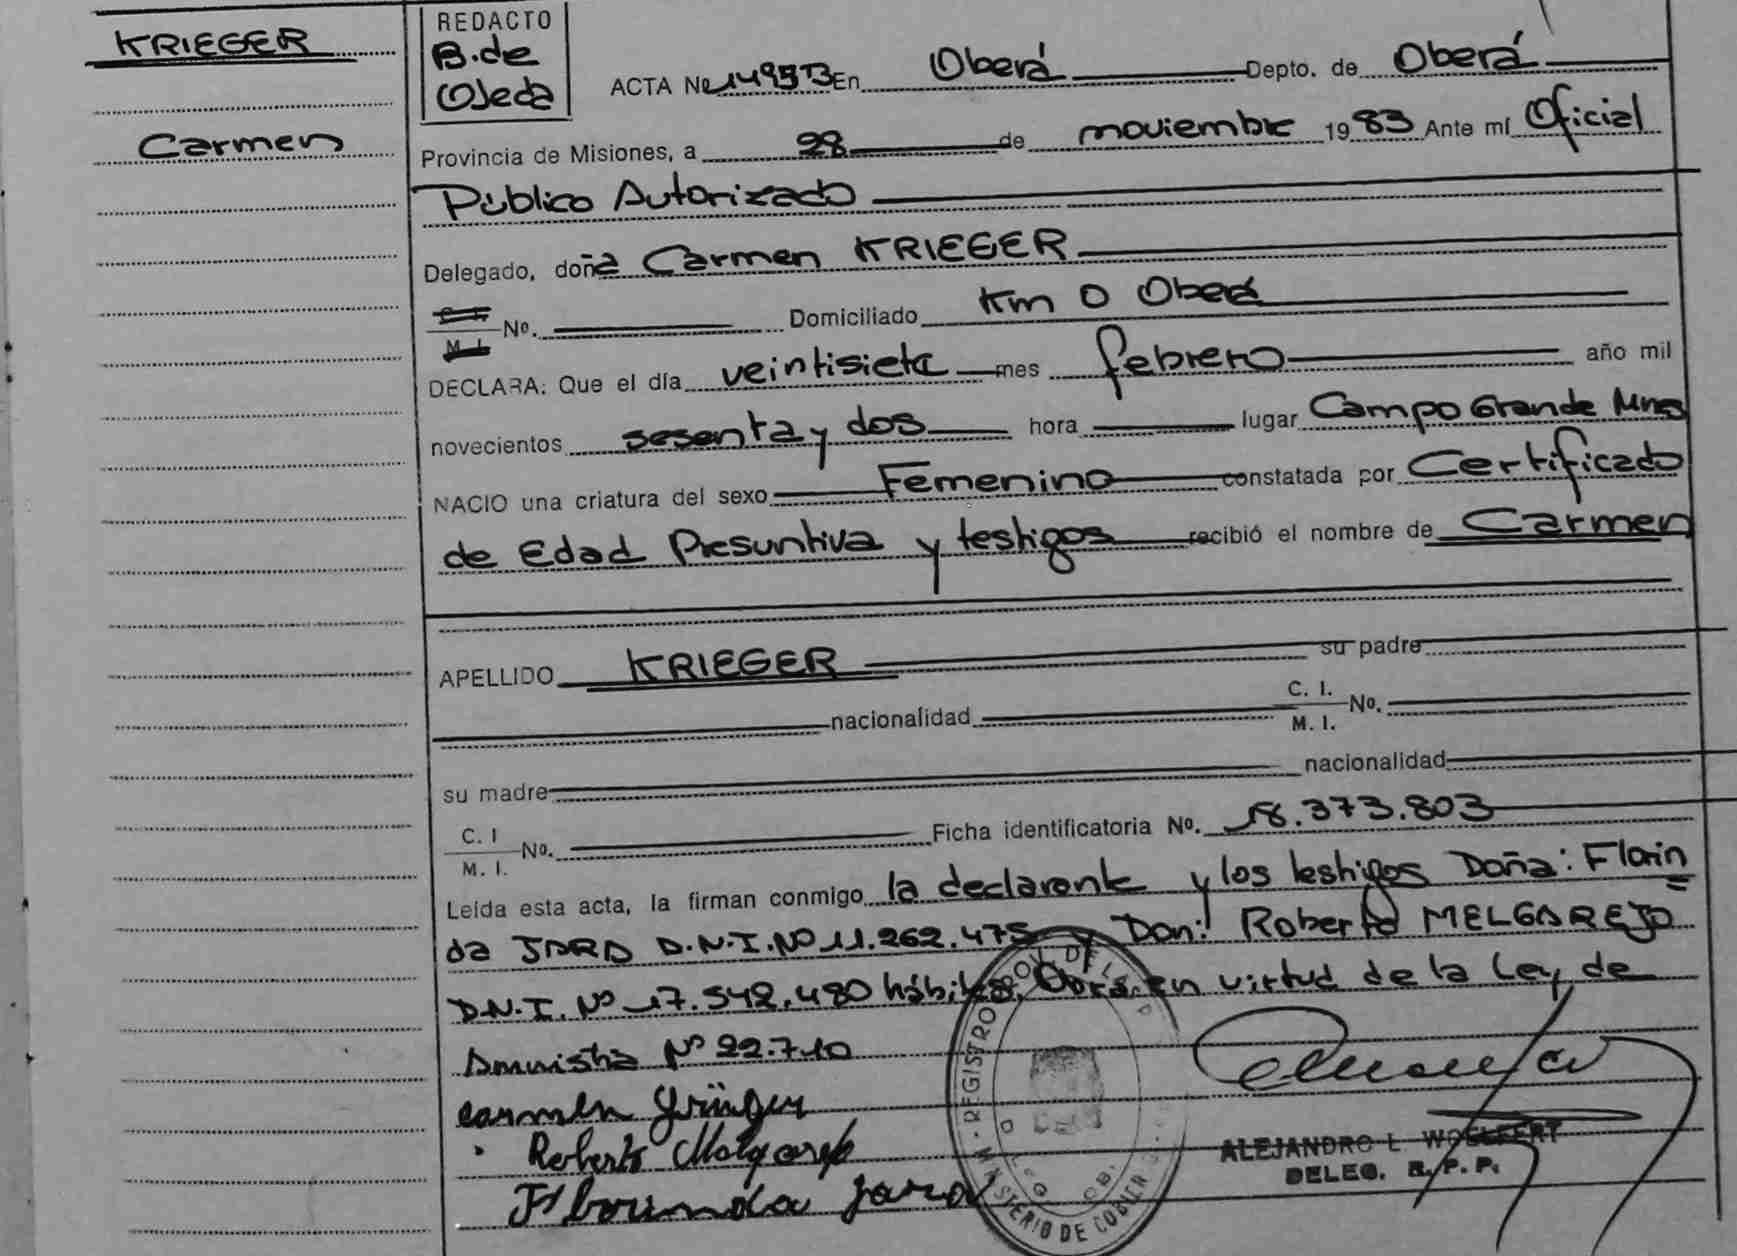 KRIEGER
Carmen
REDACTO
B. de
Ojeda
ACTA No 1495B En Oberá Depto. de Oberá
Provincia de Misiones, a 28 de noviembre 19 83 Ante mí Oficial
Público Autorizado
Delegado, doña Carmen KRIEGER
No. Domiciliado Km 0 Oberá
M. I.
DECLARA: Que el día veintisiete mes febrero año mil
novecientos sesenta y dos hora lugar Campo Grande Mnes
NACIO una criatura del sexo Femenino constatada por Certificado
de Edad Presuntiva y testigos recibió el nombre de Carmen
APELLIDO KRIEGER su padre
nacionalidad C. I. No.
M. I.
su madre nacionalidad
C. I No. Ficha identificatoria No. 18.373.803
M. I.
Leída esta acta, la firman conmigo la declarante y los testigos Doña: Florin
da JARA D.N.I. Nº 11.262.475 y Don: Roberto MELGAREJO
D.N.I. Nº 17.542.480 hábiles. Obra en virtud de la Ley de
Amnistía Nº 22.710
Carmen
Roberto Melgarejo
jara
REGISTRO PROV. DE LA
MINISTERIO DE GOBIER
ALEJANDRO L. WOELFERT
DELEG. R. P. P.